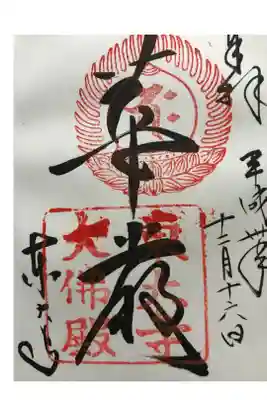 奉拝
平成
十二月十六日
華嚴
東大寺
大佛殿
東大寺